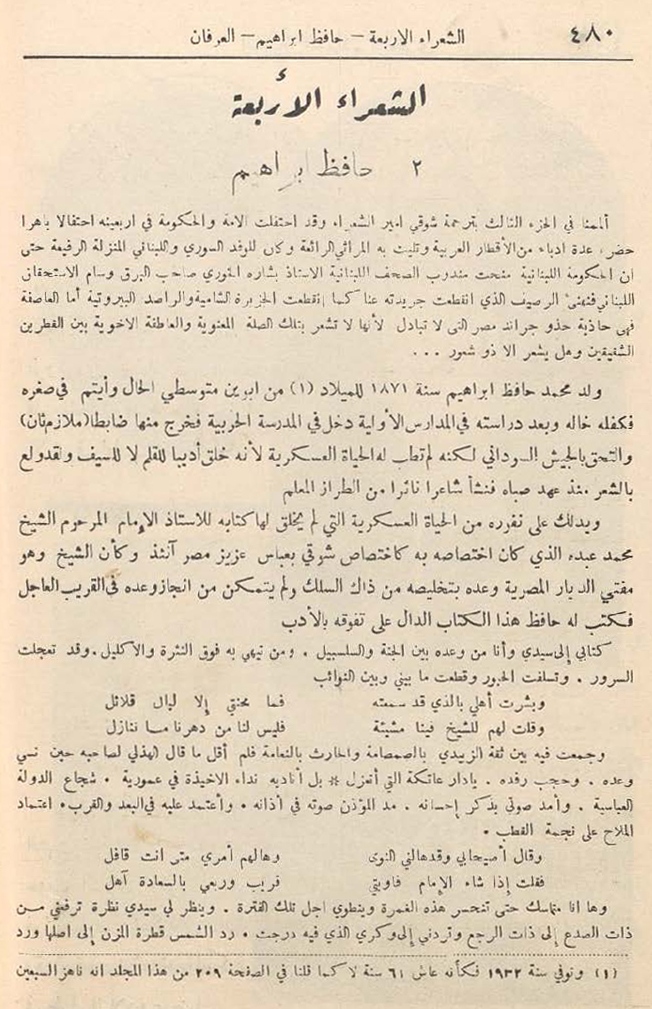 ٤٨٠
الشعراء الاربعة — حافظ ابراهيم — العرفان
الشعراء الأربعة
٢ حافظ ابراهيم
ألمعنا في الجزء الثالث بترجمة شوقي امير الشعراء وقد احتفلت الامة والحكومة في اربعينه احتفالا باهرا
حضره عدة ادباء من الأقطار العربية وتليت به المراثي الرائعة وكان للوفد السوري واللبناني المنزلة الرفيعة حتى
ان الحكومة اللبنانية منحت مندوب الصحف اللبنانية الاستاذ بشاره الخوري صاحب البرق وسام الاستحقاق
اللبناني فنهنئ الرصيف الذي انقطعت جريدته عنا كما إنقطعت الجزيرة الشامية والراصد البيروتية أما العاصفة
فهي حاذية حذو جرائد مصر التي لا تبادل لأنها لا تشعر بتلك الصلة المعنوية والعاطفة الاخوية بين القطرين
الشقيقين وهل يشعر الا ذو شعور . . .
ولد محمد حافظ ابراهيم سنة ١٨٧١ للميلاد (١) من ابوين متوسطي الحال وأيتم في صغره
فكفله خاله وبعد دراسته في المدارس الأولية دخل في المدرسة الحربية فخرج منها ضابطا (ملازم ثان)
والتحق بالجيش السوداني لكنه لم تطب له الحياة العسكرية لأنه خلق أديبا للقلم لا للسيف ولقد ولع
بالشعر منذ عهد صباه فنشأ شاعرا ناثرا من الطراز المعلم
ويدلك على نفوره من الحياة العسكرية التي لم يخلق لها كتابه للاستاذ الإمام المرحوم الشيخ
محمد عبده الذي كان اختصاصه به كاختصاص شوقي بعباس عزيز مصر آنئذ وكأن الشيخ وهو
مفتي الديار المصرية وعده بتخليصه من ذاك السلك ولم يتمكن من انجاز وعده في القريب العاجل
فكتب له حافظ هذا الكتاب الدال على تفوقه بالأدب
كتابي إلى سيدي وأنا من وعده بين الجنة والسلسبيل . ومن تيهي به فوق النثرة والاكليل . وقد تعجلت
السرور . وتسلفت الحبور وقطعت ما بيني وبين النوائب
وبشرت أهلي بالذي قد سمعته فما محنتي إلا ليال قلائل
وقلت لهم للشيخ فينا مشيئة فليس لنا من دهرنا ما ننازل
وجمعت فيه بين ثقة الزبيدي بالصمصامة والحارث بالنعامة فلم أقل ما قال الهذلي لصاحبه حين نسي
وعده . وحجب رفده . يا دار عاتكة التي أتعزل * بل أناديه نداء الاخيذة في عمورية . شجاع الدولة
العباسية . وأمد صوتي بذكر إحسانه . مد المؤذن صوته في أذانه . وأعتمد عليه في البعد والقرب . اعتماد
الملاح على نجمة القطب .
وقال أصيحابي وقد هالني النوى وهالهم أمري متى انت قافل
فقلت إذا شاء الإمام فاوبتي قريب وربعي بالسعادة آهل
وها انا متماسك حتى تنحسر هذه الغمرة وينطوي اجل تلك الفترة . وينظر لي سيدي نظرة ترفعني من
ذات الصدع إلى ذات الرجع وتردني إلى وكري الذي فيه درجت . رد الشمس قطرة المزن إلى اصلها ورد
(١) وتوفي سنة ١٩٣٢ فكأنه عاش ٦١ سنة لا كما قلنا في الصفحة ٢٠٩ من هذا المجلد انه ناهز السبعين